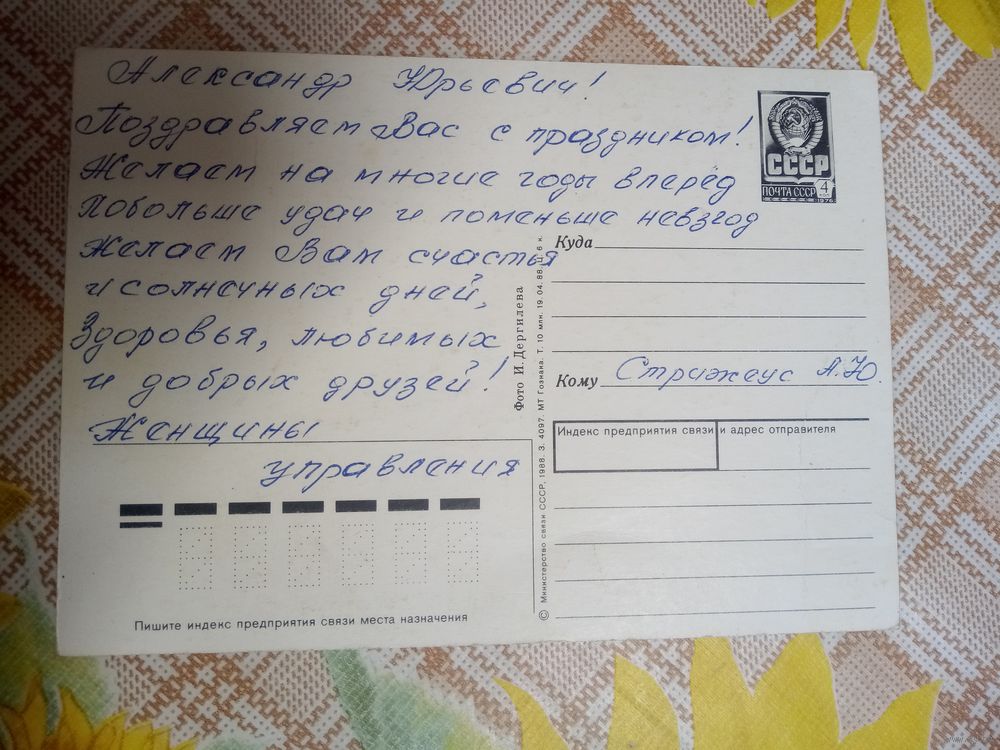 Александр Юрьевич!
Поздравляем Вас с праздником!
Желаем на многие годы вперёд
Побольше удач и поменьше невзгод
Желаем Вам счастья
и солнечных дней,
Здоровья, любимых
и добрых друзей!
Женщины
управления
СССР
ПОЧТА СССР 4
1976
Куда
Кому Стрижеус А.Ю.
Индекс предприятия связи и адрес отправителя
Фото И. Дергилева
© Министерство связи СССР, 1988. З. 4097. МТ Гознака. Т. 10 млн. 19.04.88. Ц. 6 к.
Пишите индекс предприятия связи места назначения